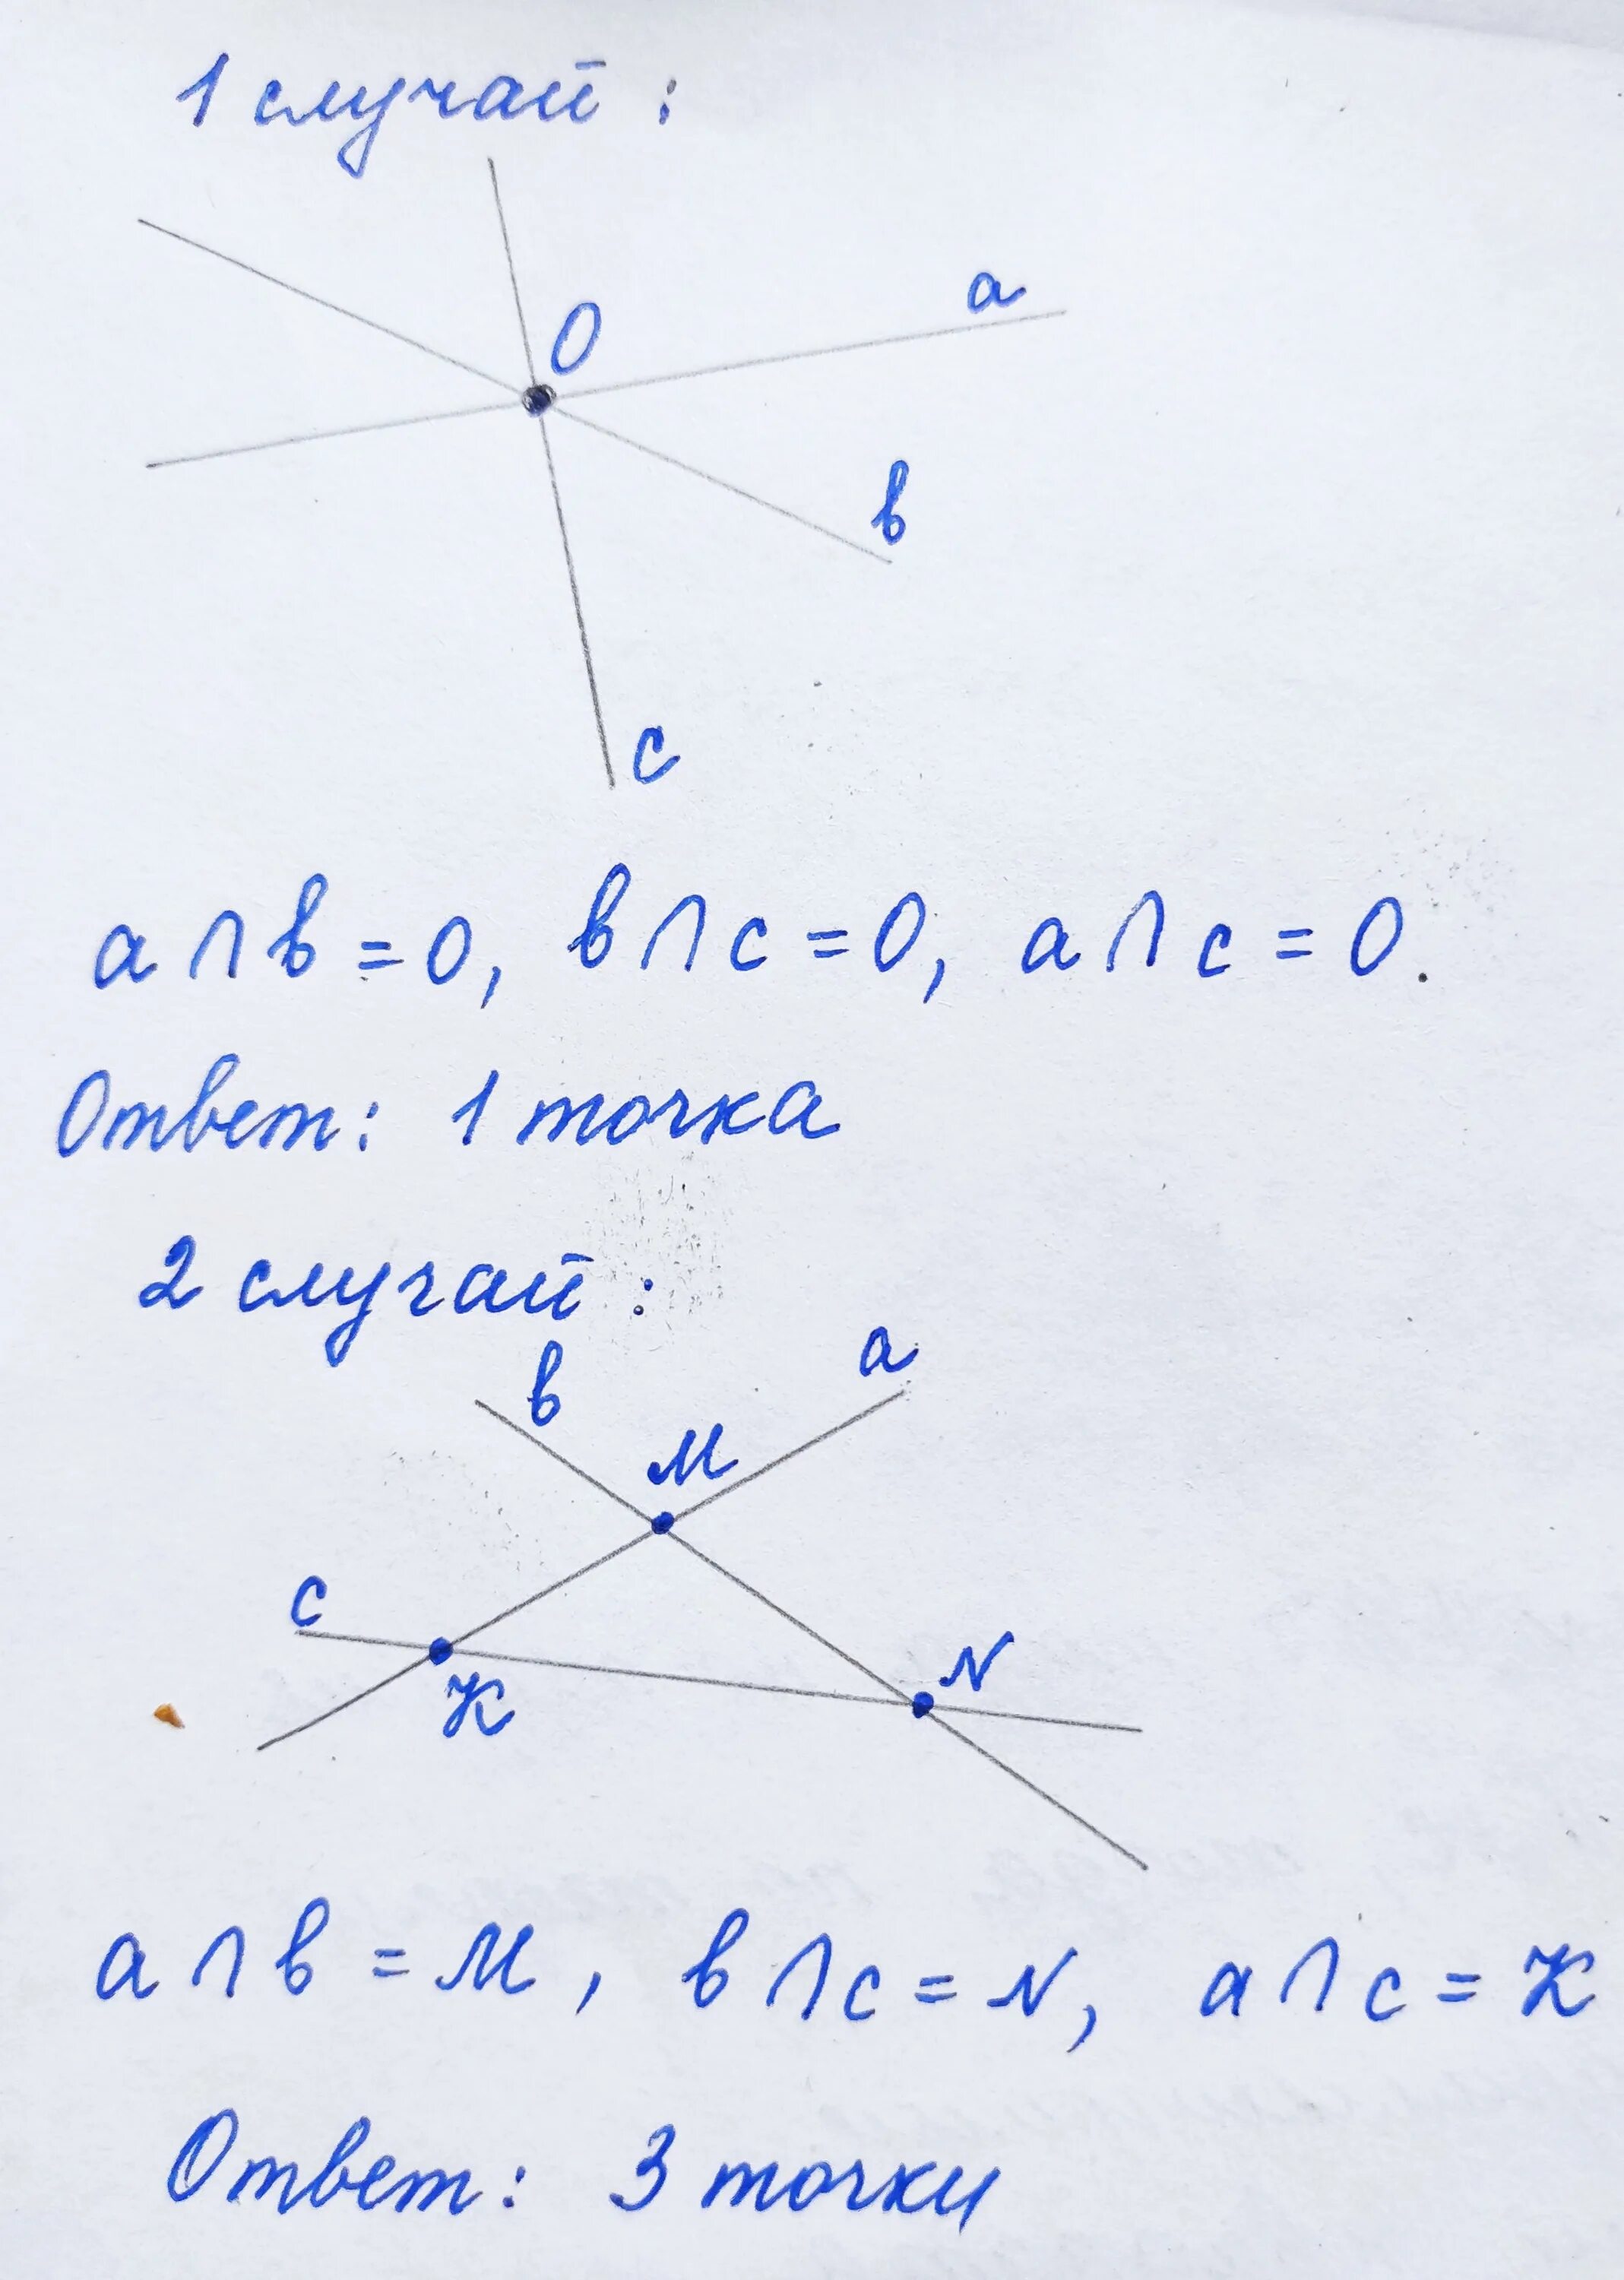 1 случай:
O
a
b
c
a ∩ b = O, b ∩ c = O, a ∩ c = O.
Ответ: 1 точка
2 случай:
b
a
M
c
N
K
a ∩ b = M, b ∩ c = N, a ∩ c = K
Ответ: 3 точки